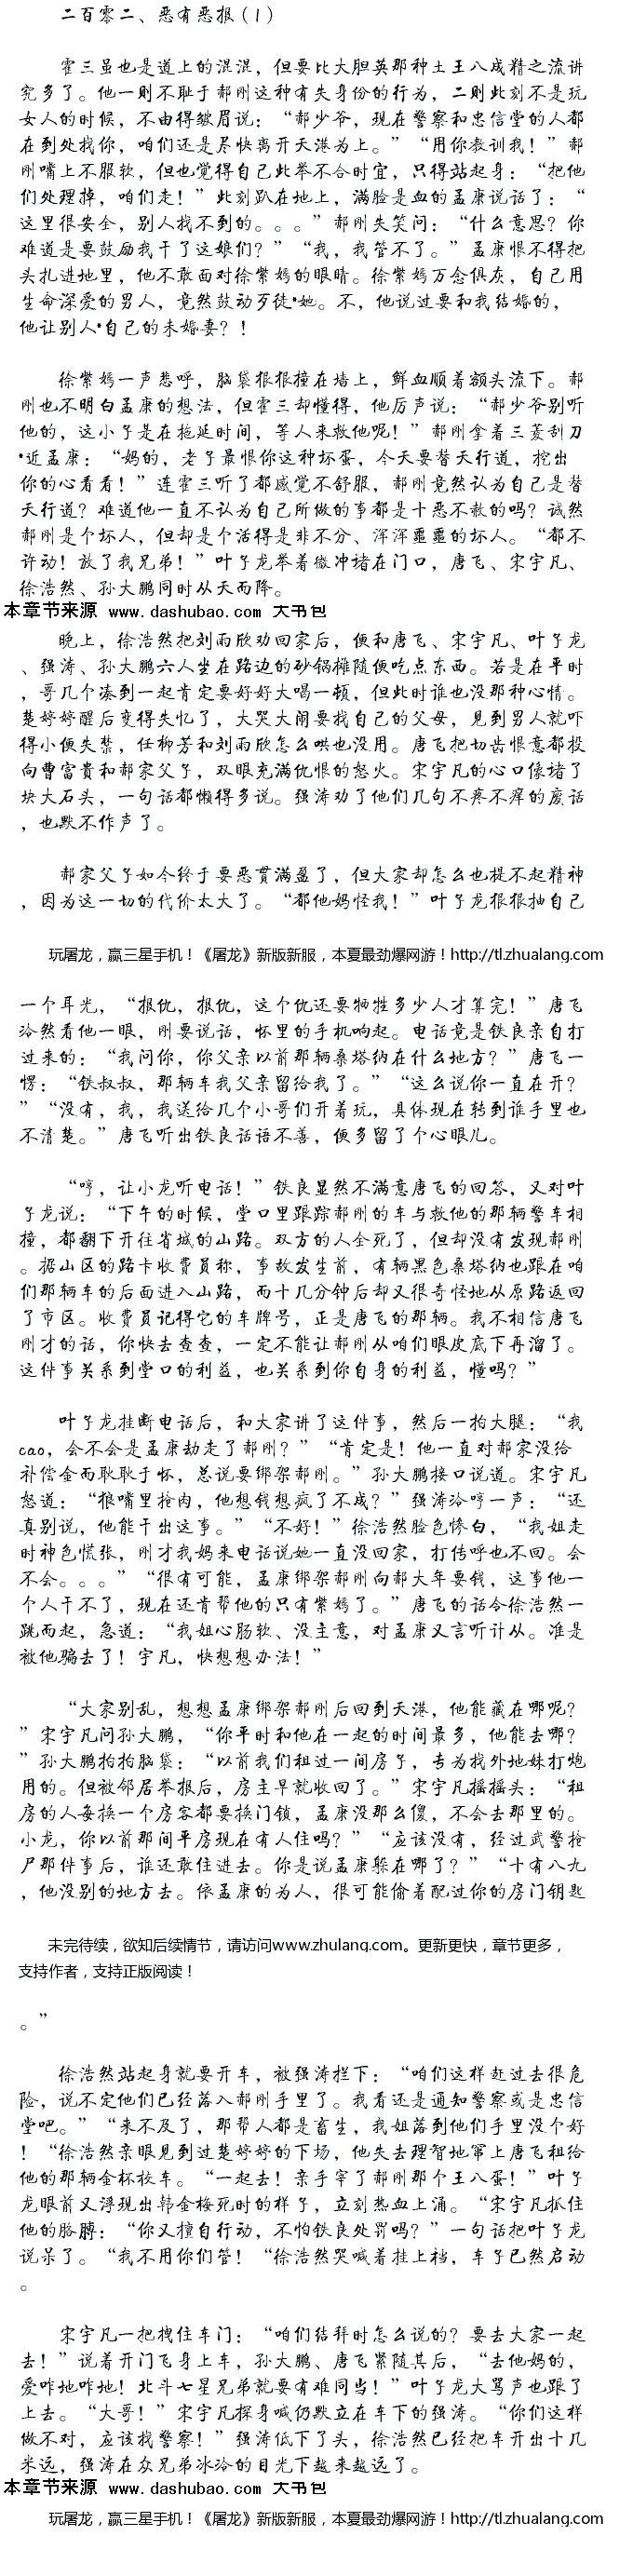 二百零二、恶有恶报(1)
霍三虽也是道上的混混，但要比大胆英那种土王八成精之流讲
究多了。他一则不耻于郝刚这种有失身份的行为，二则此刻不是玩
女人的时候，不由得皱眉说：“郝少爷，现在警察和忠信堂的人都
在到处找你，咱们还是尽快离开天港为上。”“用你教训我！”郝
刚嘴上不服软，但也觉得自己此举不合时宜，只得站起身：“把他
们处理掉，咱们走！”此刻趴在地上，满脸是血的孟康说话了：“
这里很安全，别人找不到的。。。”郝刚失笑问：“什么意思？你
难道是要鼓励我干了这娘们？”“我，我管不了。”孟康恨不得把
头扎进地里，他不敢面对徐紫嫣的眼睛。徐紫嫣万念俱灰，自己用
生命深爱的男人，竟然鼓动歹徒*她。不，他说过要和我结婚的，
他让别人*自己的未婚妻？！
徐紫嫣一声悲呼，脑袋狠狠撞在墙上，鲜血顺着额头流下。郝
刚也不明白孟康的想法，但霍三却懂得，他厉声说：“郝少爷别听
他的，这小子是在拖延时间，等人来救他呢！”郝刚拿着三菱刮刀
*近孟康：“妈的，老子最恨你这种坏蛋，今天要替天行道，挖出
你的心看看！”连霍三听了都感觉不舒服，郝刚竟然认为自己是替
天行道？难道他一直不认为自己所做的事都是十恶不赦的吗？诚然
郝刚是个坏人，但却是个活得是非不分、浑浑噩噩的坏人。“都不
许动！放了我兄弟！”叶子龙举着微冲堵在门口，唐飞、宋宇凡、
徐浩然、孙大鹏同时从天而降。
本章节来源 www.dashubao.com 大书包
晚上，徐浩然把刘雨欣劝回家后，便和唐飞、宋宇凡、叶子龙
、强涛、孙大鹏六人坐在路边的砂锅摊随便吃点东西。若是在平时
，哥几个凑到一起肯定要好好大喝一顿，但此时谁也没那种心情。
楚婷婷醒后变得失忆了，大哭大闹要找自己的父母，见到男人就吓
得小便失禁，任柳芳和刘雨欣怎么哄也没用。唐飞把切齿恨意都投
向曹富贵和郝家父子，双眼充满仇恨的怒火。宋宇凡的心口像堵了
块大石头，一句话都懒得多说。强涛劝了他们几句不疼不痒的废话
，也默不作声了。
郝家父子如今终于要恶贯满盈了，但大家却怎么也提不起精神
，因为这一切的代价太大了。“都他妈怪我！”叶子龙狠狠抽自己
玩屠龙，赢三星手机！《屠龙》新版新服，本夏最劲爆网游！http://tl.zhualang.com
一个耳光，“报仇，报仇，这个仇还要牺牲多少人才算完！”唐飞
冷然看他一眼，刚要说话，怀里的手机响起。电话竟是铁良亲自打
过来的：“我问你，你父亲以前那辆桑塔纳在什么地方？”唐飞一
愣：“铁叔叔，那辆车我父亲留给我了。”“这么说你一直在开？
”“没有，我，我送给几个小哥们开着玩，具体现在转到谁手里也
不清楚。”唐飞听出铁良话语不善，便多留了个心眼儿。
“哼，让小龙听电话！”铁良显然不满意唐飞的回答，又对叶
子龙说：“下午的时候，堂口里跟踪郝刚的车与救他的那辆警车相
撞，都翻下开往省城的山路。双方的人全死了，但却没有发现郝刚
。据山区的路卡收费员称，事故发生前，有辆黑色桑塔纳也跟在咱
们那辆车的后面进入山路，而十几分钟后却又很奇怪地从原路返回
了市区。收费员记得它的车牌号，正是唐飞的那辆。我不相信唐飞
刚才的话，你快去查查，一定不能让郝刚从咱们眼皮底下再溜了。
这件事关系到堂口的利益，也关系到你自身的利益，懂吗？”
叶子龙挂断电话后，和大家讲了这件事，然后一拍大腿：“我
cao，会不会是孟康劫走了郝刚？”“肯定是！他一直对郝家没给
补偿金而耿耿于怀，总说要绑架郝刚。”孙大鹏接口说道。宋宇凡
怒道：“狼嘴里抢肉，他想钱想疯了不成？”强涛冷哼一声：“还
真别说，他能干出这事。”“不好！”徐浩然脸色惨白，“我姐走
时神色慌张，刚才我妈来电话说她一直没回家，打传呼也不回。会
不会。。。”“很有可能，孟康绑架郝刚向郝大年要钱，这事他一
个人干不了，现在还肯帮他的只有紫嫣了。”唐飞的话令徐浩然一
跳而起，急道：“我姐心肠软、没主意，对孟康又言听计从。准是
被他骗去了！宇凡，快想想办法！”
“大家别乱，想想孟康绑架郝刚后回到天港，他能藏在哪呢？
”宋宇凡问孙大鹏，“你平时和他在一起的时间最多，他能去哪？
”孙大鹏拍拍脑袋：“以前我们租过一间房子，专为找外地妹打炮
用的。但被邻居举报后，房主早就收回了。”宋宇凡摇摇头：“租
房的人每换一个房客都要换门锁，孟康没那么傻，不会去那里的。
小龙，你以前那间平房现在有人住吗？”“应该没有，经过武警抢
尸那件事后，谁还敢住进去。你是说孟康躲在哪了？”“十有八九
，他没别的地方去。依孟康的为人，很可能偷着配过你的房门钥匙
未完待续，欲知后续情节，请访问www.zhulang.com。更新更快，章节更多，
支持作者，支持正版阅读！
。”
徐浩然站起身就要开车，被强涛拦下：“咱们这样赶过去很危
险，说不定他们已经落入郝刚手里了。我看还是通知警察或是忠信
堂吧。”“来不及了，那帮人都是畜生，我姐落到他们手里没个好
！“徐浩然亲眼见到过楚婷婷的下场，他失去理智地窜上唐飞租给
他的那辆金杯校车。“一起去！亲手宰了郝刚那个王八蛋！”叶子
龙眼前又浮现出韩金梅死时的样子，立刻热血上涌。“宋宇凡抓住
他的胳膊：“你又擅自行动，不怕铁良处罚吗？”一句话把叶子龙
说呆了。“我不用你们管！“徐浩然哭喊着挂上档，车子已然启动
。
宋宇凡一把拽住车门：“咱们结拜时怎么说的？要去大家一起
去！”说着开门飞身上车，孙大鹏、唐飞紧随其后，“去他妈的，
爱咋地咋地！北斗七星兄弟就要有难同当！”叶子龙大骂声也跟了
上去。“大哥！”宋宇凡探身喊仍默立在车下的强涛。“你们这样
做不对，应该找警察！”强涛低下了头，徐浩然已经把车开出十几
米远，强涛在众兄弟冰冷的目光下越来越远了。
本章节来源 www.dashubao.com 大书包
玩屠龙，赢三星手机！《屠龙》新版新服，本夏最劲爆网游！http://tl.zhualang.com